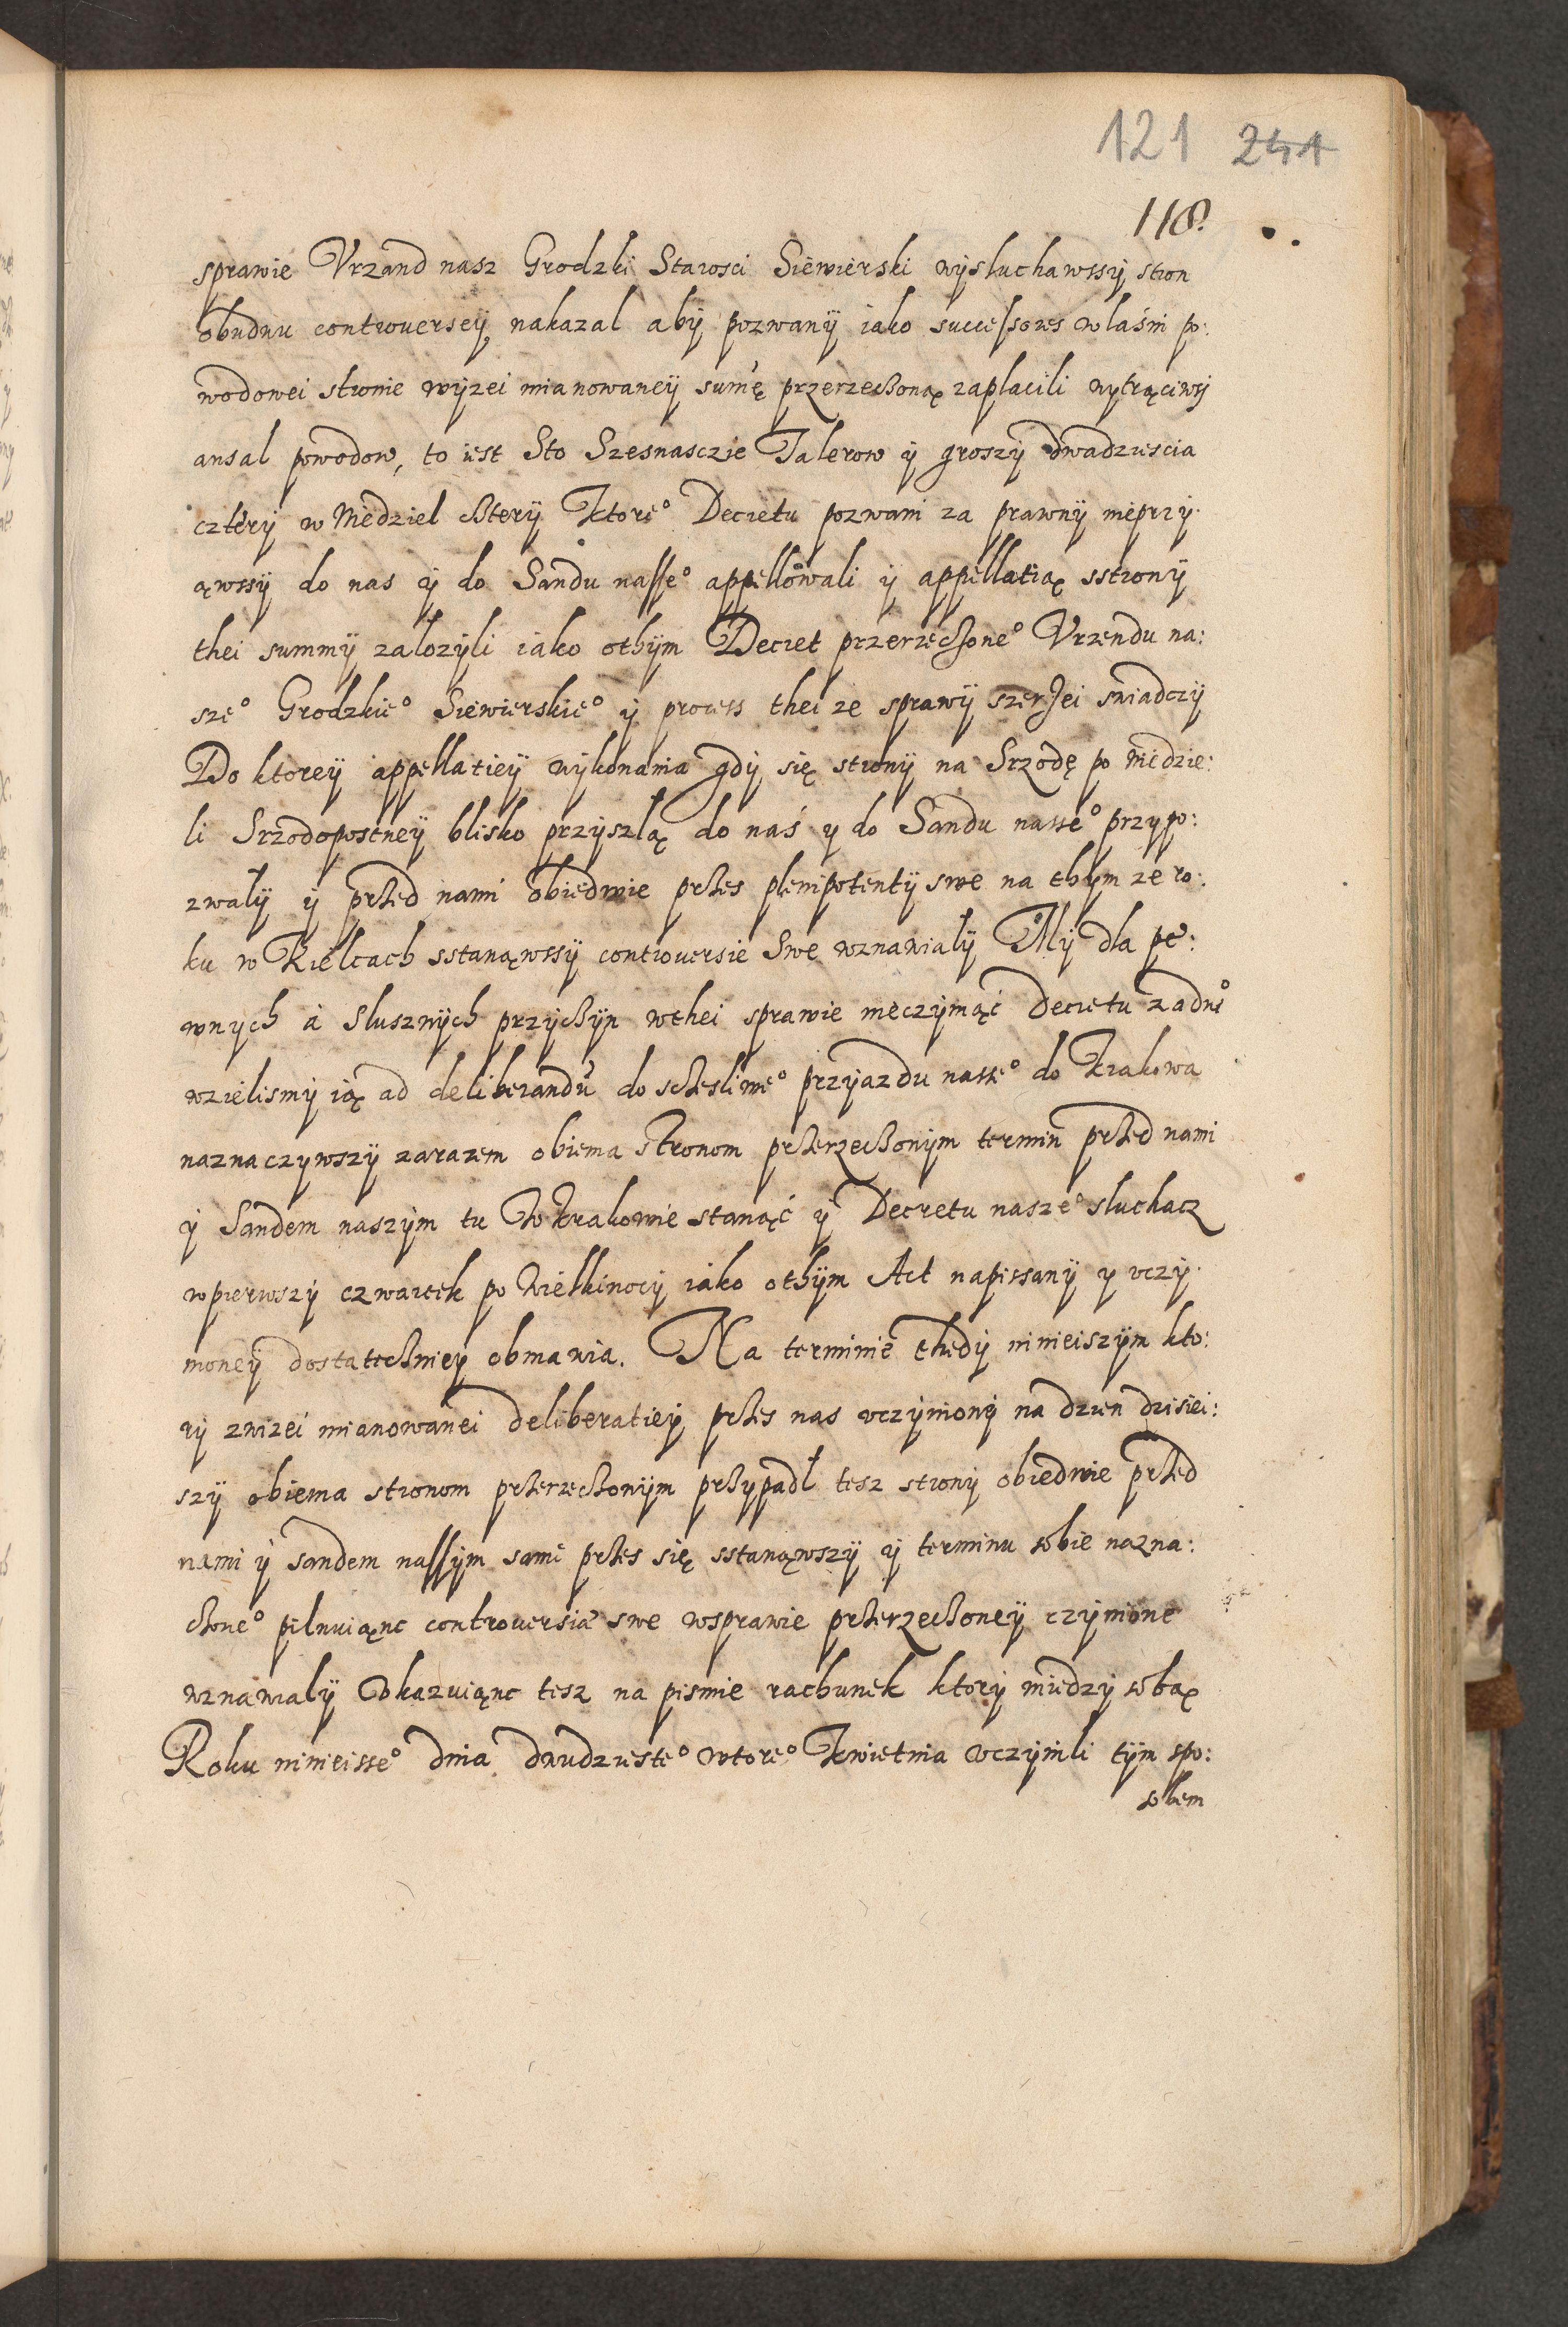 121 241
118.
sprawie Vrzand nasz Grodzki Starosci Siewierski wÿsluchawssÿ stron
obudnu controuerseÿ, nakazal abÿ pozwanÿ iako successores wlaśni po:
wodowei stronie wÿzei mianowaneÿ sumę przerzeczoną zaplacili wytrąciwsÿ
ansal powodow, to iest Sto Szesnasczie Talerow ÿ groszÿ dwadziescia
czterÿ w Niedziel czterÿ Ktore° Decretu pozwani za prawnÿ nieprzÿ
ąwssÿ do nas ÿ do Sandu nasse° appellowali ÿ appellatią sstronÿ
thei summÿ zalozÿli iako othÿm Decret przerzeczone° Vrzendu na:
sze° Grodzkie° Siewierskie° ÿ process thei ze sprawÿ szerzei swiadczÿ
Do ktoreÿ appellatieÿ wÿkonania gdÿ się stronÿ na Srzodę po Niedzie:
li Srzodopostneÿ blisko przÿszlą do nas y do Sandu nasse° przypo:
zwalÿ ÿ przed nami obiedwie przes plenipotentÿ swe na thÿm ze ro:
ku w Kielcach sstanąwssÿ controuersie Swe wznawialÿ Mÿ dla pe:
wnych á Slusznÿch przÿczÿn wthei sprawie nieczÿniąć Decretu zadn°
wzielismÿ ią ad deliberandū do sczesliwe° przÿazdu nasse° do Krakowa
naznaczywszÿ zarazem obiema stronom przerzeczonÿm termin przed nami
ÿ Sandem naszÿm tu w Krakowie stanąć ÿ Decretu nasze° sluchacz
wpierwszÿ czwartek po Wielkinocÿ iako othÿm Act napissanÿ y vczÿ
nioneÿ dostateczniey obmawia. Na terminie thedÿ ninieiszÿm kto:
rÿ zwizei mianowanei deliberatieÿ przes nas vczÿnionÿ na dzien dzisiei:
szÿ obiema stronom przerzeczonÿm przypadł tesz stronÿ obiedwie przed
nami ÿ sandem nassÿm same przes się sstanąwszÿ ÿ terminu sobie nazna:
czone° pilnuiąnc controuersiæ swe wsprawie przerzeczoneÿ czÿnione
wznawialÿ Okazuiąnc tesz na pismie rachunek ktorÿ miedzÿ sobą
Roku ninieisse° dnia dwudzieste° wtore° Kwietnia vczÿnili tÿm spo:
sobem